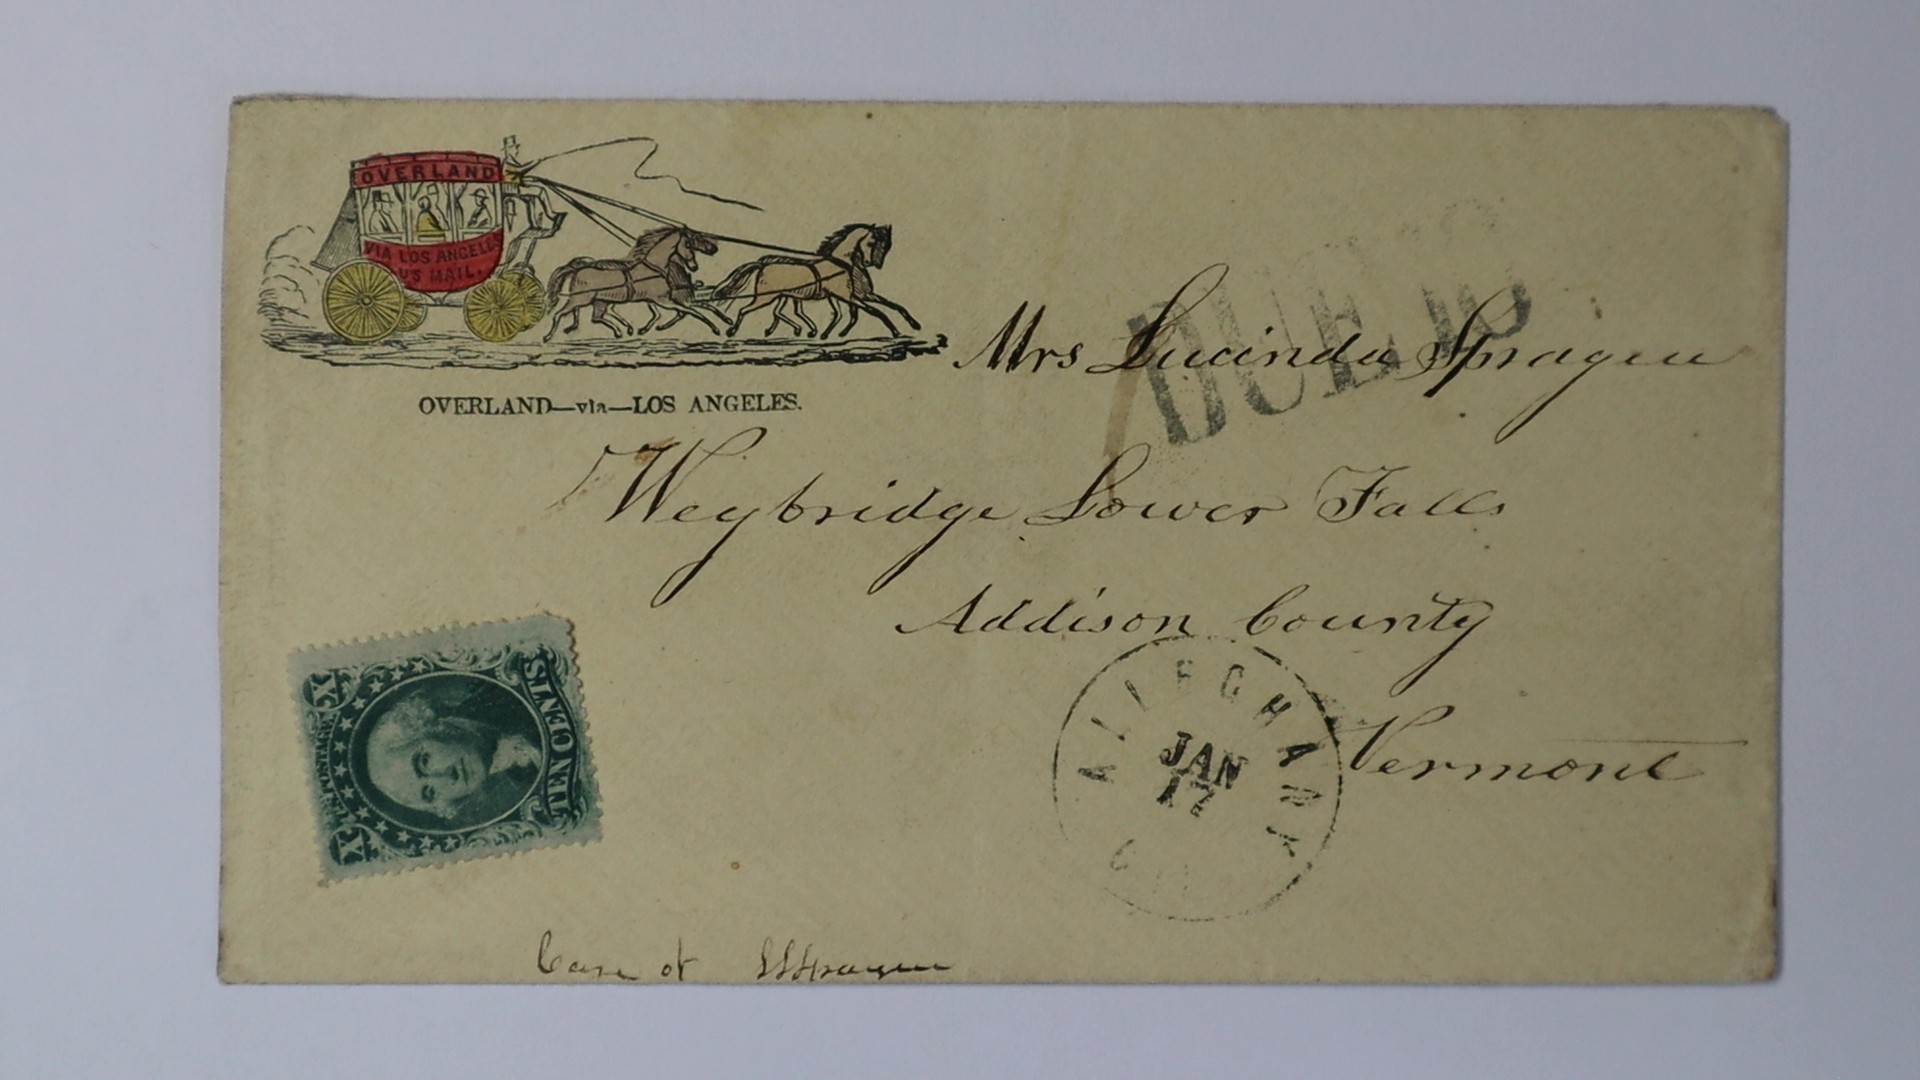 OVERLAND
VIA LOS ANGELES
US MAIL.
OVERLAND—via—LOS ANGELES.
DUE 10
Mrs Lucinda Sprague
Weybridge Lower Falls
Addison County
Vermont
U.S. POSTAGE
TEN CENTS
X X
ALLEGHANY
JAN
17
Care of Sprague